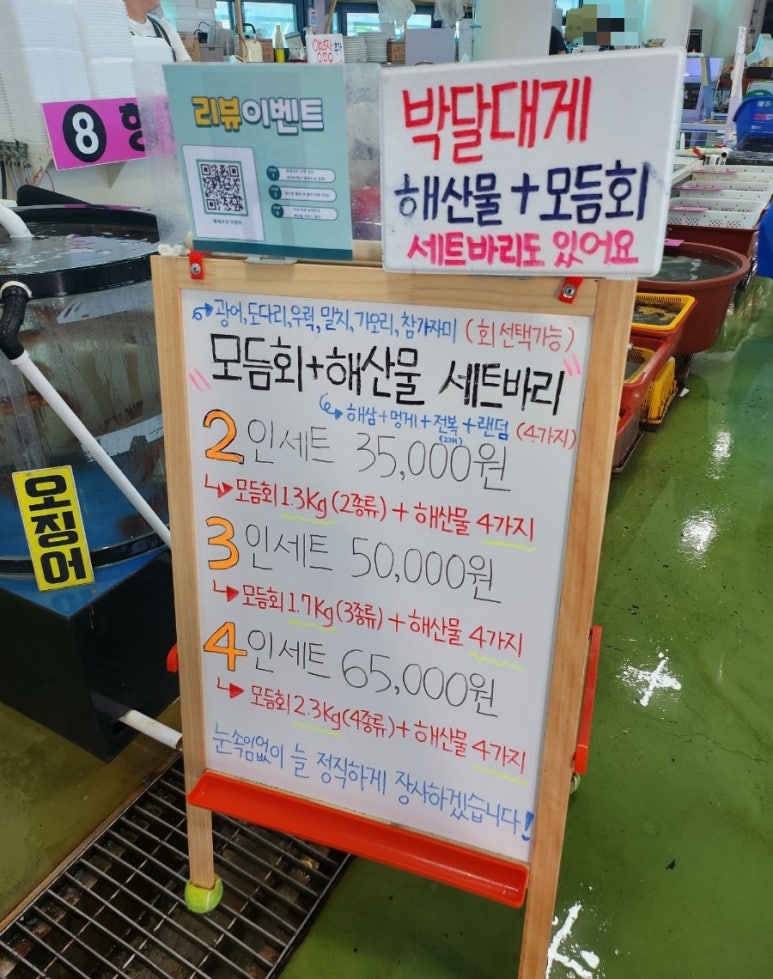 양념장
8
리뷰이벤트
박달대게
해산물+모듬회
세트바리도 있어요
광어,도다리,우럭,밀치,가오리,참가자미 (회 선택가능)
모듬회+해산물 세트바리
해삼+멍게+전복+랜덤 (4가지)
2인세트 35,000원
모듬회 1.3Kg (2종류) + 해산물 4가지
3인세트 50,000원
모듬회 1.7Kg (3종류) + 해산물 4가지
4인세트 65,000원
모듬회 2.3Kg (4종류) + 해산물 4가지
눈속임없이 늘 정직하게 장사하겠습니다!
오징어